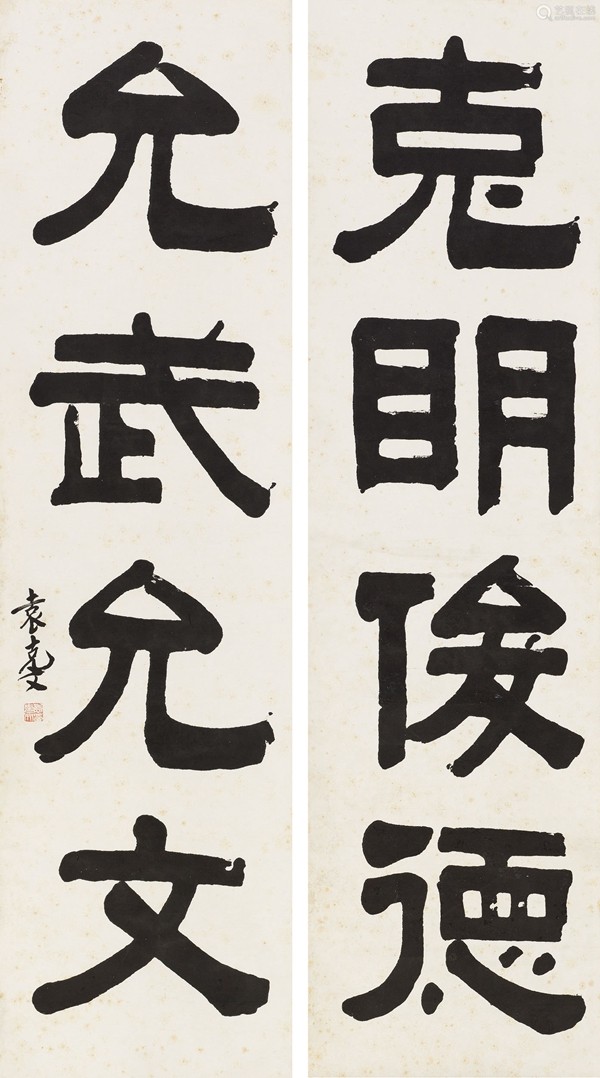 克明俊德
允武允文
袁克文